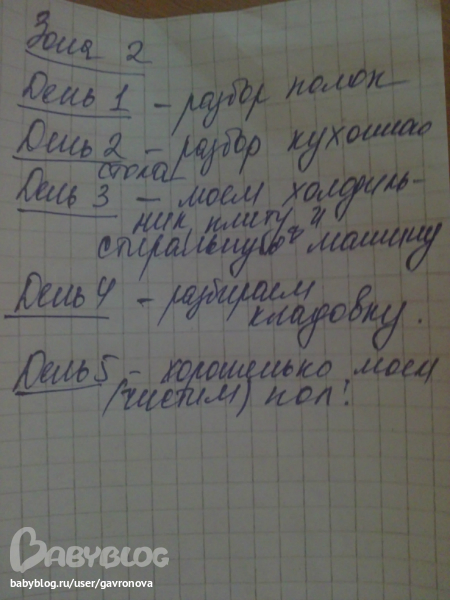 Зона 2
День 1 - разбор полок
День 2 - разбор кухонного
стола
День 3 - моем холодиль-
ник плиту и
стиральную машину
День 4 - разбираем
кладовку.
День 5 - хорошенько моем
(чистим) пол!
BABYBLOG
babyblog.ru/user/gavronova